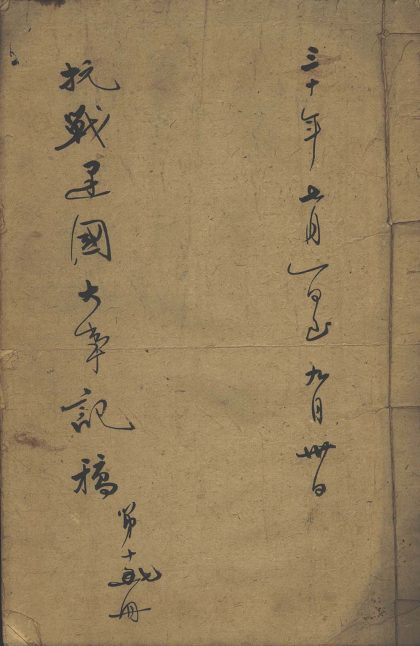 三十年七月一日至九月卅日
抗戰建國大事記稿
第十七冊